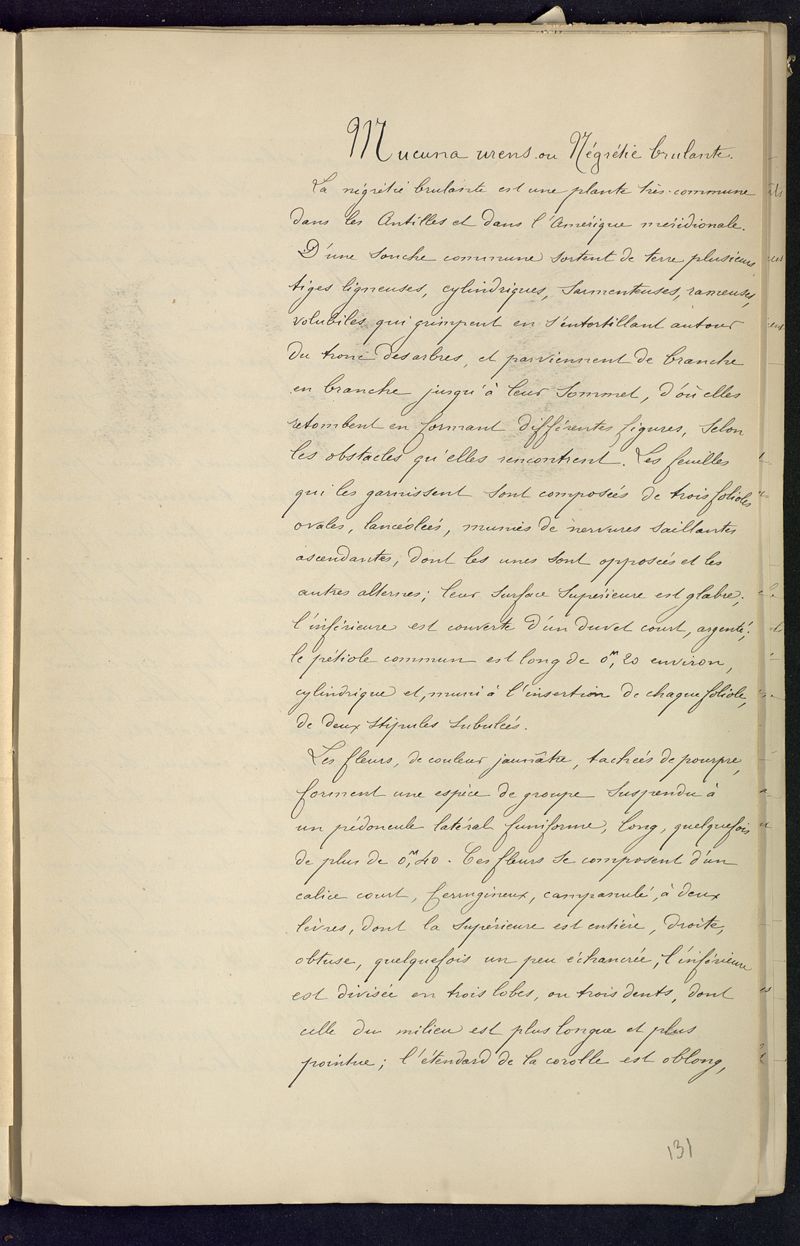 Mucuna urens ou Négrétie brulante.
La négrétie brulante est une plante très-commune
dans les Antilles et dans l'Amérique méridionale.
D'une souche commune sortent de terre plusieurs
tiges ligneuses, cylindriques, sarmenteuses, rameuses,
volubiles, qui grimpent en s'entortillant autour
du tronc des arbres, et parviennent de branche
en branche jusqu'à leur sommet, d'où elles
retombent en formant différentes figures, selon
les obstacles qu'elles rencontrent. Les feuilles
qui les garnissent sont composées de trois folioles
ovales, lancéolées, munies de nervures saillantes
ascendantes, dont les unes sont opposées et les
autres alternes; leur surface supérieure est glabre;
l'inférieure est couverte d'un duvet court, argenté;
le pétiole commun est long de 0m,20 environ,
cylindrique et, muni à l'insertion de chaque foliole,
de deux stipules subulées.
Les fleurs, de couleur jaunâtre, tachées de pourpre,
forment une espèce de groupe suspendu à
un pédoncule latéral funiforme, long, quelquefois
de plus de 0m,40. Ces fleurs se composent d'un
calice court, ferrugineux, campanulé, à deux
lèvres, dont la supérieure est entière, droite,
obtuse, quelquefois un peu échancrée, l'inférieure
est divisée en trois lobes, ou trois dents, dont
celle du milieu est plus longue et plus
pointue; l'étendard de la corolle est oblong,
131